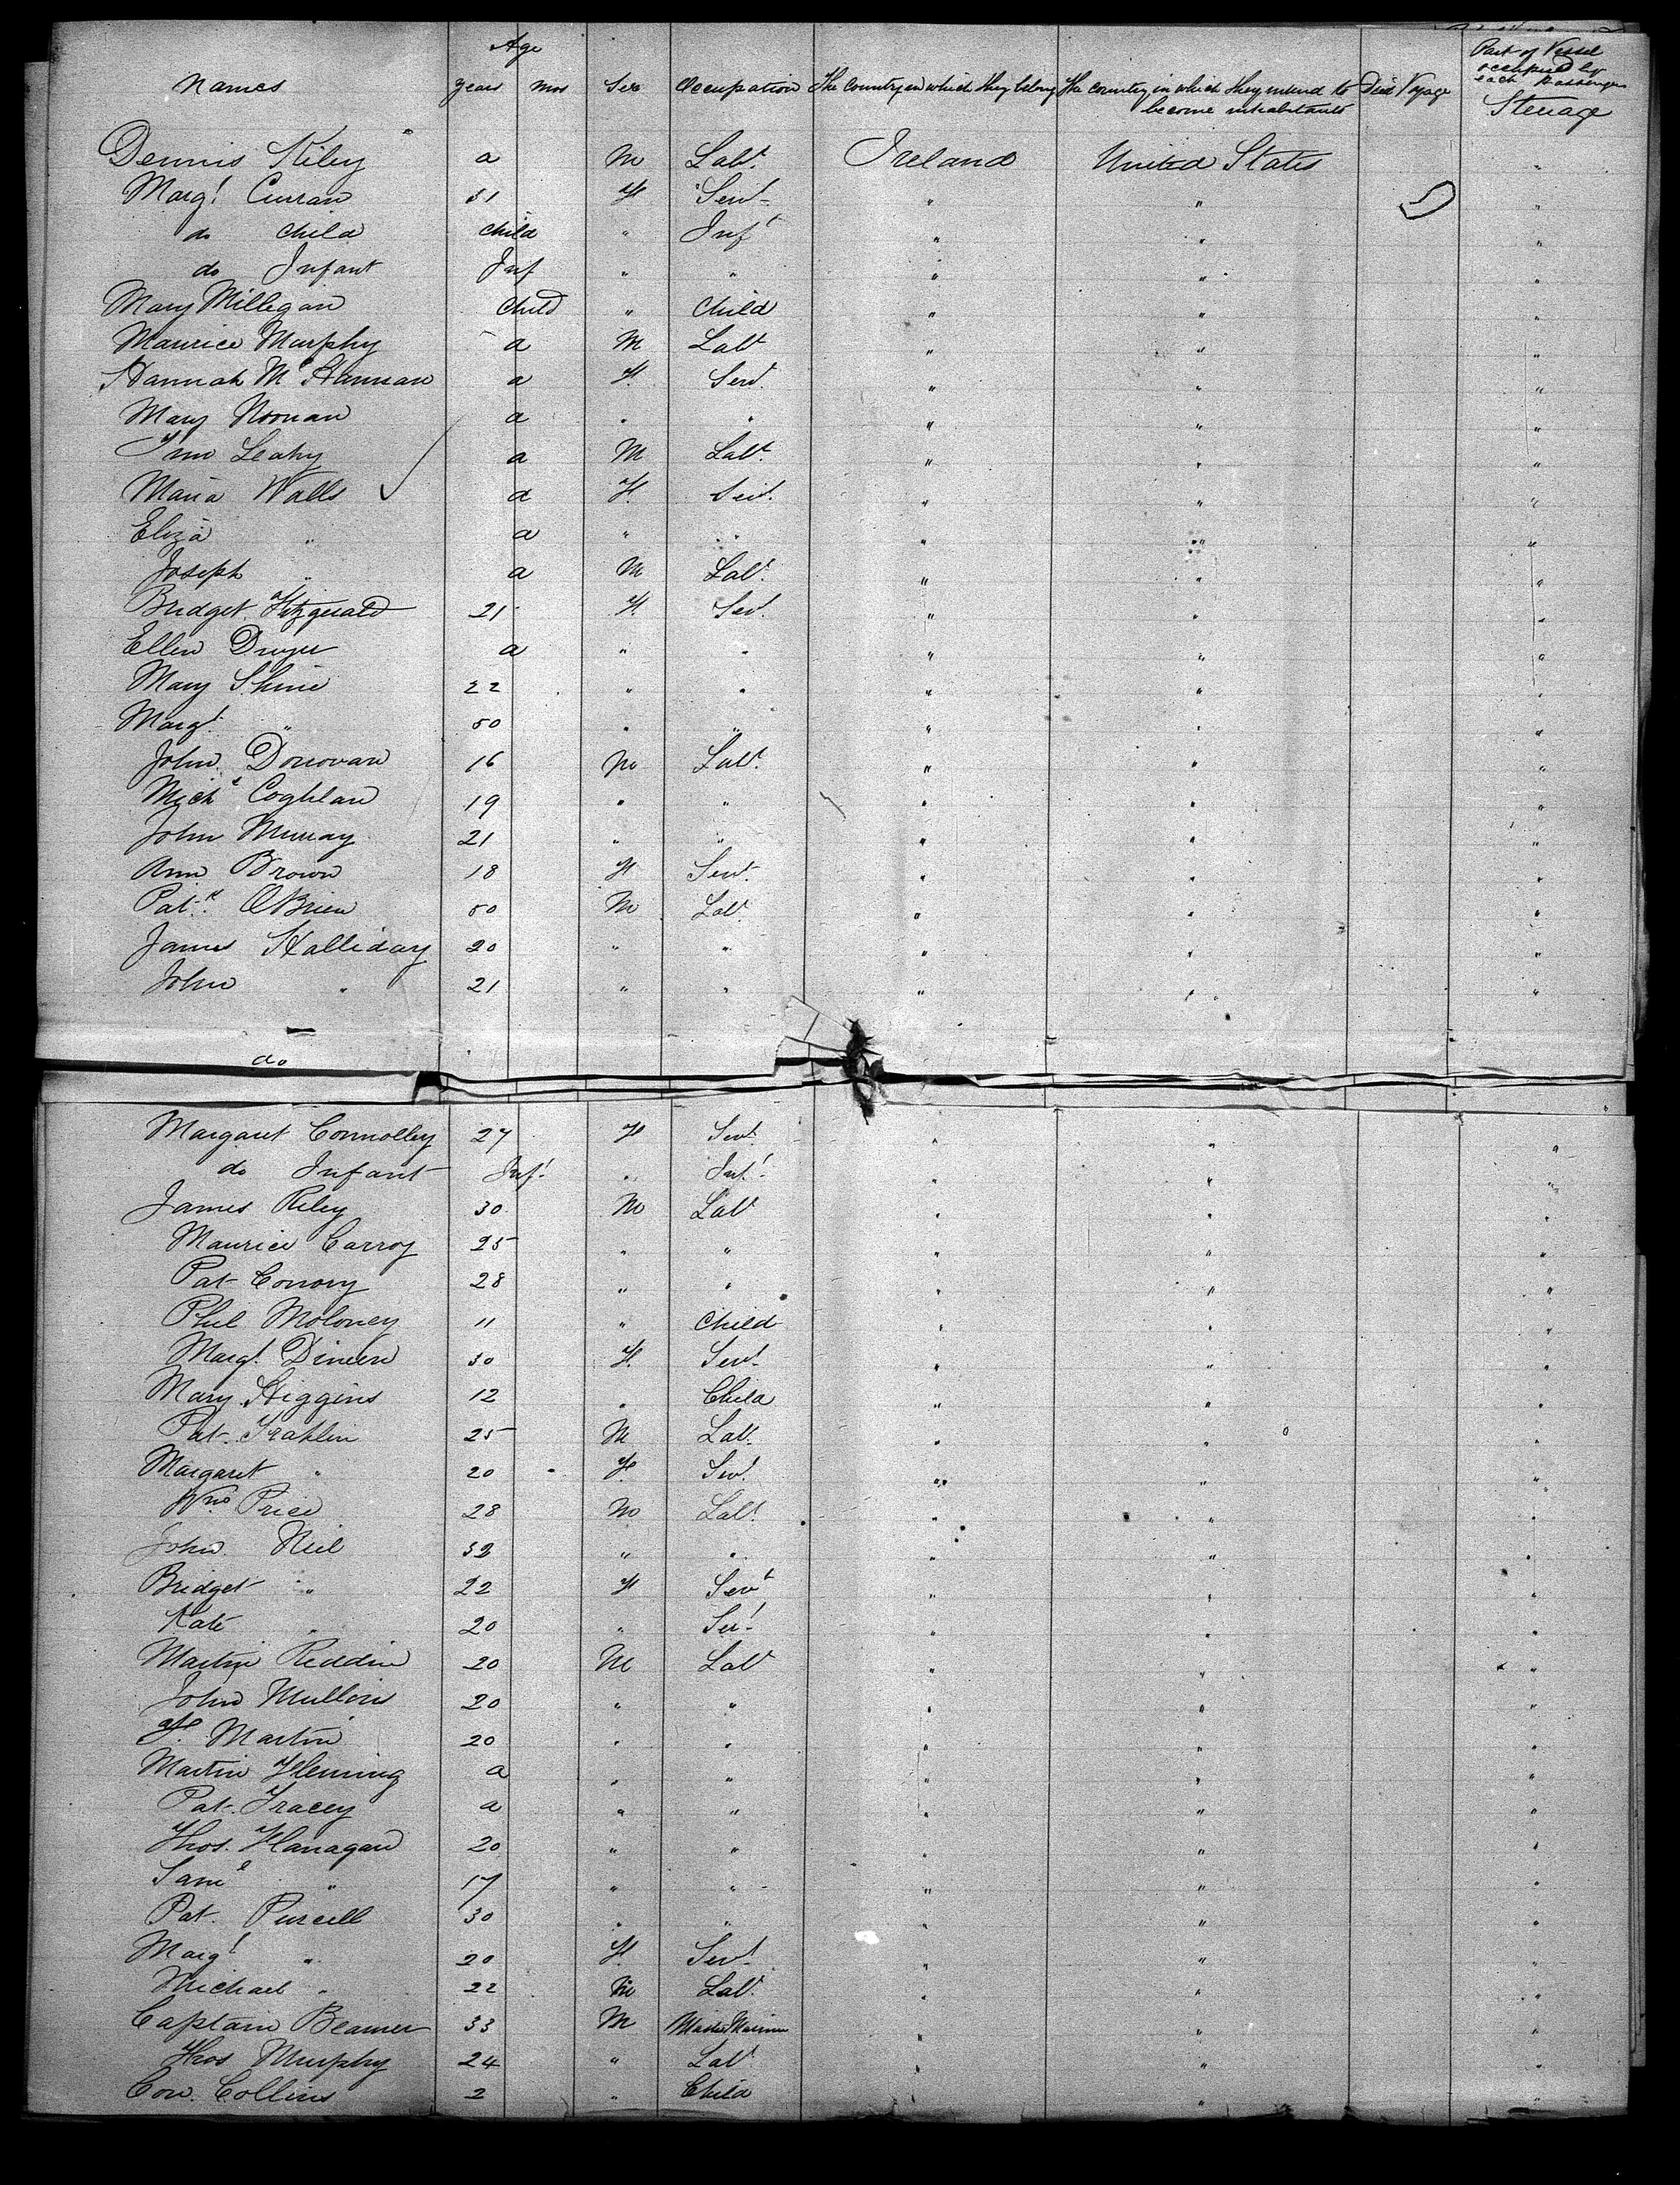 Age
Names years mos Sex Occupation The Country in which they belong The country in which they intend to become inhabitants Died Voyage Part of Vessel occupied by each Passenger
Steerage
Dennis Kiley a M Labt. Ireland United States "
Margt. Curran 31 F Servt. " " "
do child child " Inft " " "
do Infant Inf " " " " "
Mary Milligan child " Child " " "
Maurice Murphy a M Labt " " "
Hannah Mc Hannan a F. Servt. " " "
Mary Noonan a " " " " "
Leahy a M Labt. " " "
Maria Walls a F. Servt. " " "
Eliza " a " " " " "
Joseph " a M Labt. " " "
Bridget Fitzgerald 21 F. Servt. " " "
Ellen Dwyer a " " " " "
Mary Shine 22 " " " " "
Margt. " 50 " " " " "
John Donovan 16 M Labt. " " "
Michl Coghlan 19 " " " " "
John Murray 21 " " " " "
Ann Brown 18 F Servt. " " "
Patk. OBrien 50 M Labt " " "
James Halliday 20 " " " " "
John " 21 " " " " "
do
Margaret Connolley 27 F Servt. " " "
do Infant Inft. " Inft. " " "
James Riley 30 M Labt " " "
Maurice Carroy 25 " " " " "
Pat Conory 28 " " " " "
Phil Moloney 11 " Child " " "
Margt. Dineen 30 F. Servt. " " "
Mary Higgins 12 " Child " " "
Pat. Frahlin 25 M Labt. " " "
Margaret " 20 F. Servt. " " "
Wm Price 28 M Labt. " " "
John Neil 32 " " " " "
Bridget " 22 F Servt " " "
Kate " 20 " Servt. " " "
Martin Reddin 20 M Labt " " "
John Mullins 20 " " " " "
Martin 20 " " " " "
Martin Fleming a " " " " "
Pat. Tracey a " " " " "
Thos. Flanagan 20 " " " " "
Saml " 17 " " " " "
Pat. Purcell 30 " " " " "
Margt " 20 F. Servt. " " "
Michael " 22 M Labt. " " "
Captain Beamer 33 M Master Mariner " " "
Thos Murphy 24 " Labt " " "
Con. Collins 2 " Child " "